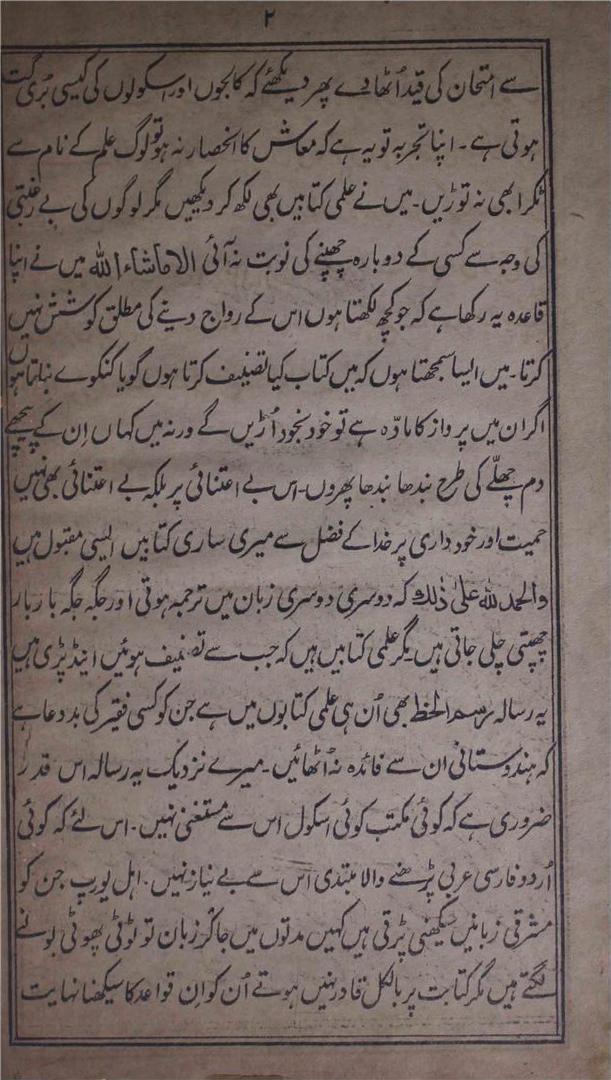 ۲
سے امتحان کی قید اُٹھا دے پھر دیکھئے کہ کالجوں اور اسکولوں کی کیسی بُری گت
ہوتی ہے۔ اپنا تجربہ تو یہ ہے کہ معاش کا انحصار نہ ہو تو لوگ علم کے نام سے
ٹکرا بھی نہ توڑیں۔ میں نے علمی کتابیں بھی لکھ کر دیکھیں مگر لوگوں کی بے رغبتی
کی وجہ سے کسی کے دوبارہ چھپنے کی نوبت نہ آئی الا ماشاء اللہ میں نے اپنا
قاعدہ یہ رکھا ہے کہ جو کچھ لکھتا ہوں اس کے رواج دینے کی مطلق کوشش نہیں
کرتا۔ میں ایسا سمجھتا ہوں کہ میں کتاب کیا تصنیف کرتا ہوں گویا کنکوے بناتا ہوں
اگر ان میں پرواز کا مادّہ ہے تو خود بخود اُڑیں گے ورنہ میں کہاں اِن کے پیچھے
دم چھلّے کی طرح بندھا بندھا پھروں۔ اس بے اعتنائی پر بلکہ بے اعتنائی بھی نہیں
حمیت اور خودداری پر خدا کے فضل سے میری ساری کتابیں ایسی مقبول ہیں
والحمد للہ علیٰ ذٰلک کہ دوسری دوسری زبان میں ترجمہ ہوتی اور جگہ جگہ بار بار
چھپتی چلی جاتی ہیں۔ مگر علمی کتابیں ہیں کہ جب سے تصنیف ہوئیں اینڈ پڑی ہیں
یہ رسالہ رسم الخط بھی اُن ہی علمی کتابوں میں ہے جن کو کسی فقیر کی بددعا ہے
کہ ہندوستانی ان سے فائدہ نہ اُٹھائیں۔ میرے نزدیک یہ رسالہ اس قدر
ضروری ہے کہ کوئی مکتب کوئی اسکول اس سے مستغنی نہیں۔ اس لئے کہ کوئی
اُردو فارسی عربی پڑھنے والا مبتدی اس سے بے نیاز نہیں۔ اہل یورپ جن کو
مشرقی زبانیں سیکھنی پڑتی ہیں کہیں مدتوں میں جا کر زبان تو ٹوٹی پھوٹی بولنے
لگتے ہیں مگر کتابت پر بالکل قادر نہیں ہوتے اُن کو اِن قواعد کا سیکھنا نہایت